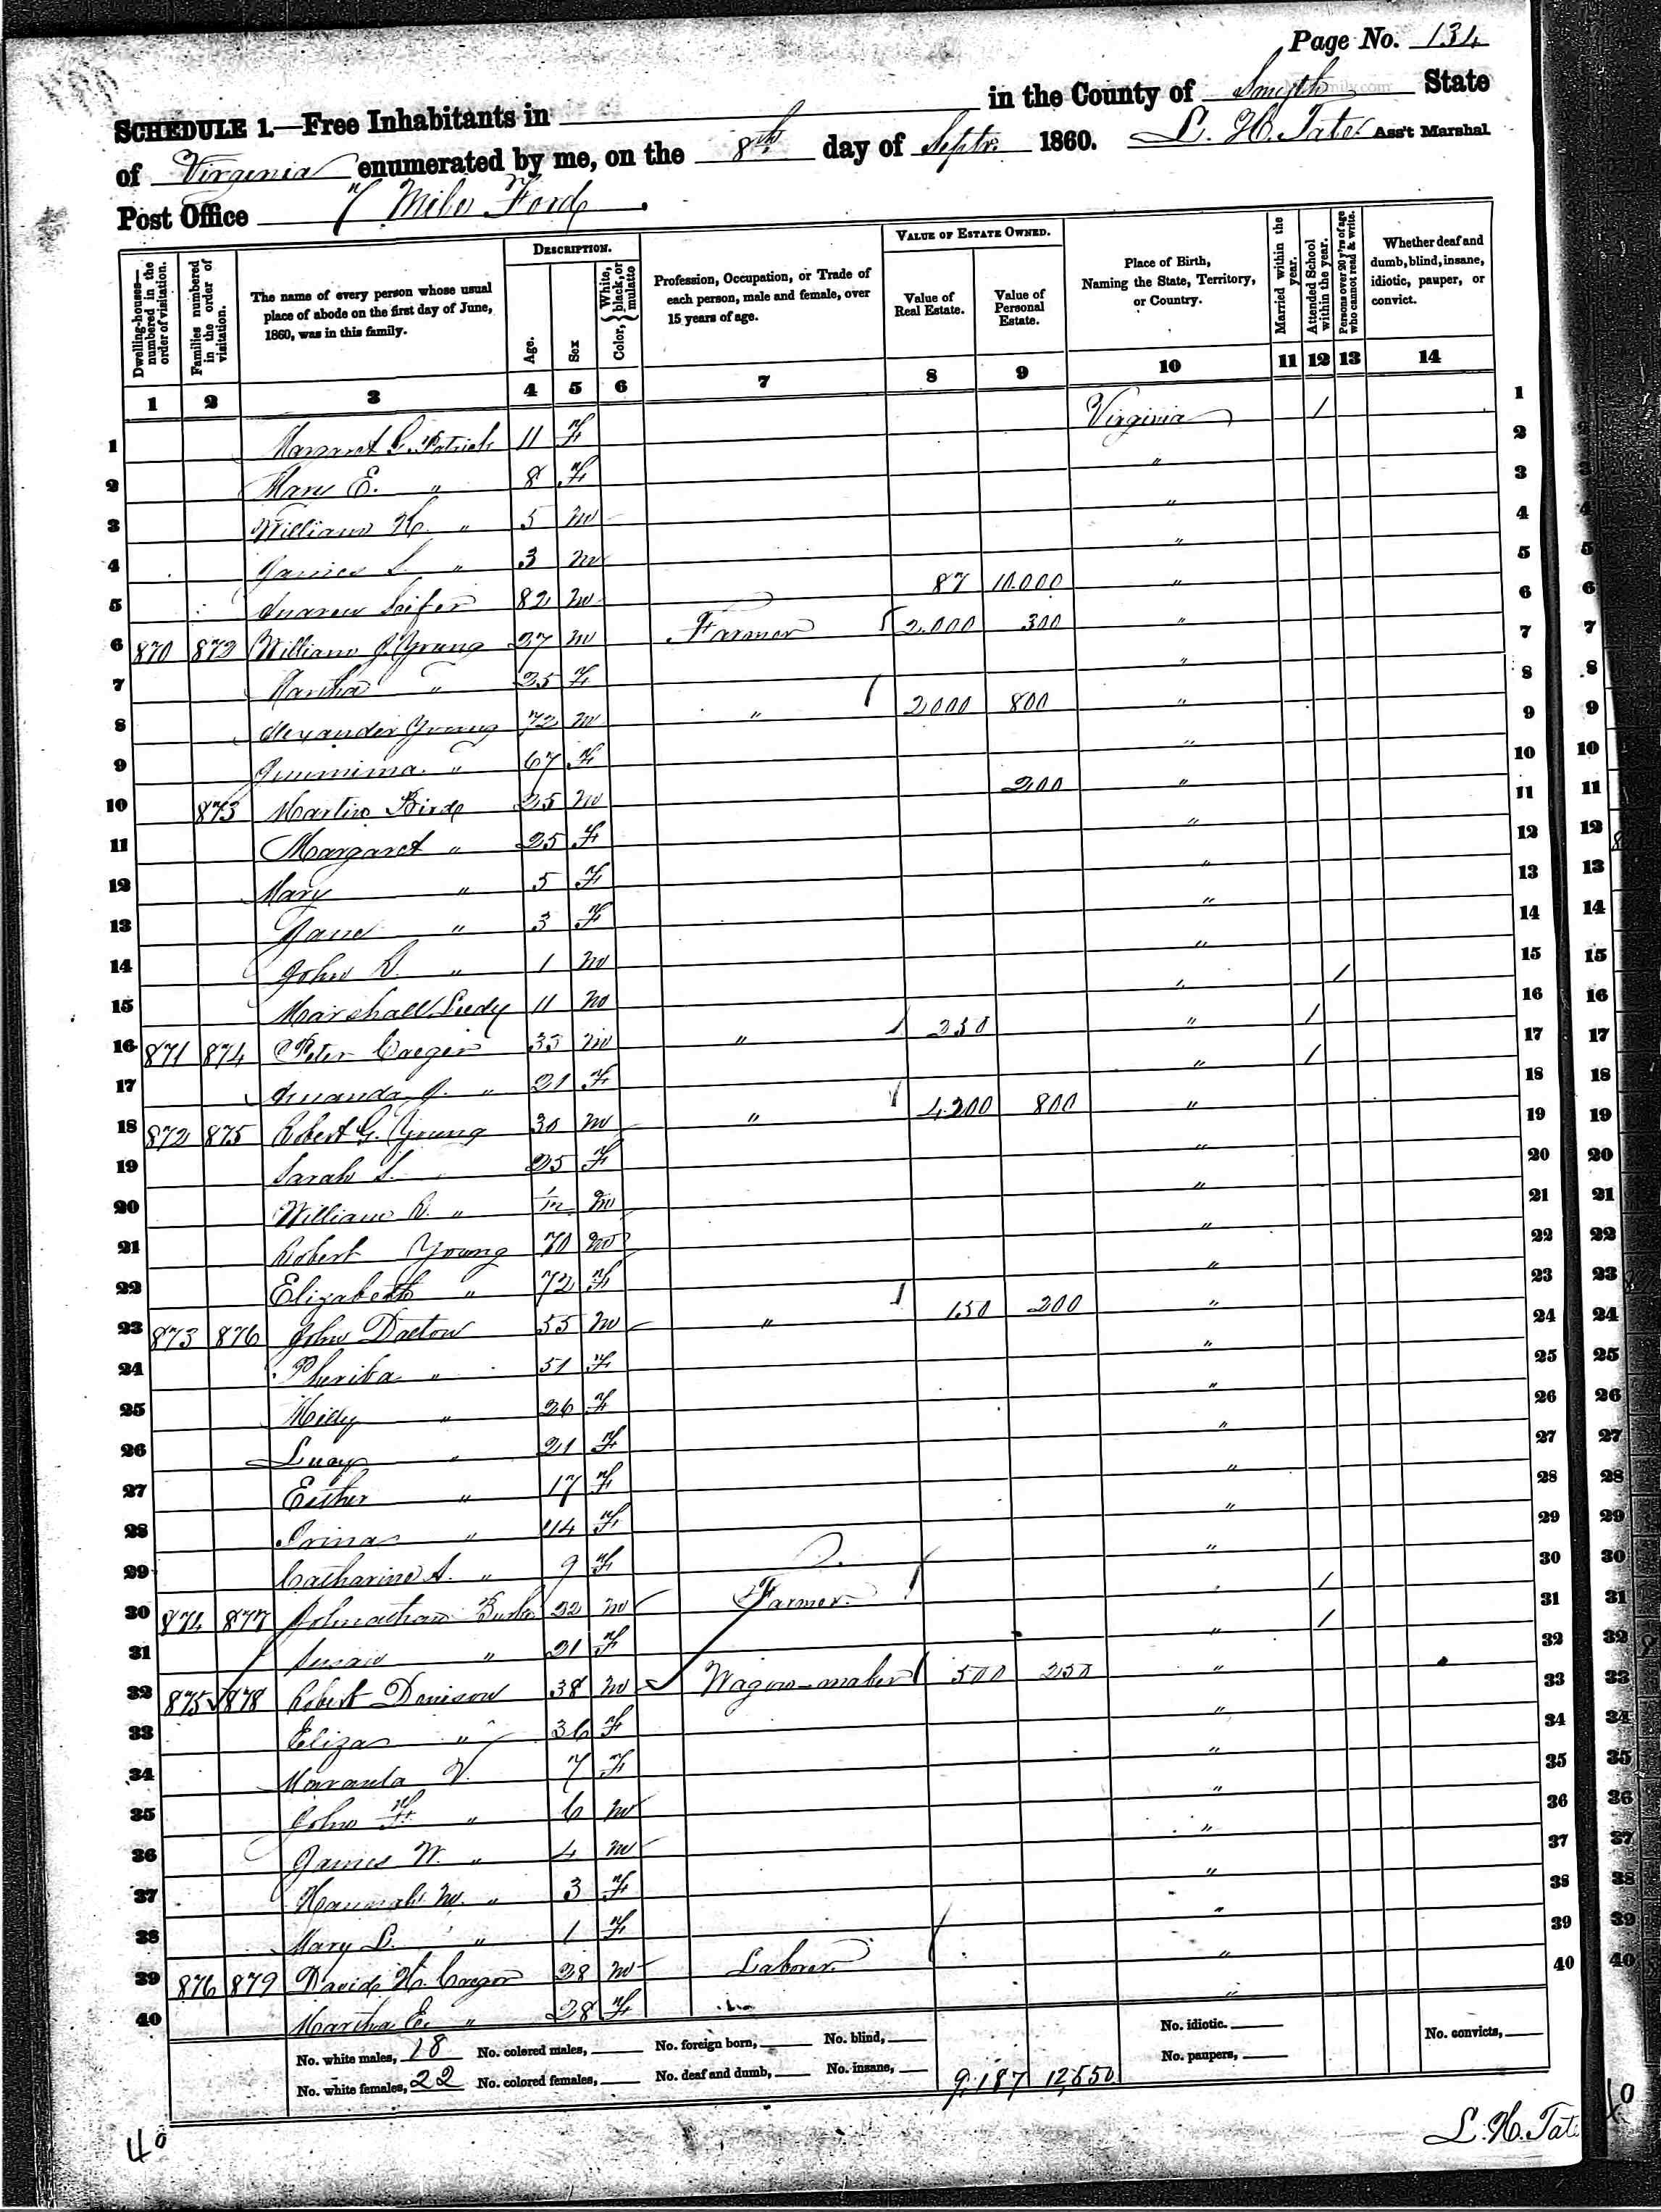 Page No. 134
SCHEDULE 1.—Free Inhabitants in in the County of Smyth State
of Virginia enumerated by me, on the 8th day of Septr. 1860. L. H. Tate Ass't Marshal
Post Office 7 Mile Ford.
Dwelling-houses—numbered in the order of visitation.
Families numbered in the order of visitation.
The name of every person whose usual place of abode on the first day of June, 1860, was in this family.
DESCRIPTION.
Age.
Sex
Color, White, black, or mulatto
Profession, Occupation, or Trade of each person, male and female, over 15 years of age.
VALUE OF ESTATE OWNED.
Value of Real Estate.
Value of Personal Estate.
Place of Birth, Naming the State, Territory, or Country.
Married within the year.
Attended School within the year.
Persons over 20 y'rs of age who cannot read & write.
Whether deaf and dumb, blind, insane, idiotic, pauper, or convict.
1 2 3 4 5 6 7 8 9 10 11 12 13 14
1 Margaret Patrick 11 F Virginia / 1
2 Mary E. " 8 F " 2
3 William H. " 5 M " 3
4 James S. " 3 M " 4
5 Andrew 82 M 87 10.000 " 5
6 870 872 William J. Young 27 M Farmer 2.000 300 " 6
7 Martha " 25 F " 7
8 Alexander Young 72 M " 2000 800 " 8
9 " 67 F " 9
10 873 Martin Bird 25 M 200 " 10
11 Margaret " 25 F " 11
12 Mary " 5 F " 12
13 Jane " 3 F " 13
14 John " 1 M " 14
15 Marshall 11 M " / 15
16 871 874 Peter 35 M " 250 " / 16
17 Amanda J. " 21 F " / 17
18 872 875 Robert G. Young 30 M " 4200 800 " 18
19 Sarah S. 25 F " 19
20 William " 1/12 M " 20
21 Robert Young 70 M " 21
22 Elizabeth " 72 F " 22
23 873 876 John Dalton 55 M " 150 200 " 23
24 Pheriba " 51 F " 24
25 Milly " 26 F " 25
26 Lucy " 21 F " 26
27 Esther " 17 F " 27
28 " 14 F " 28
29 Catharine A. " 9 F " 29
30 874 877 Johnathan 22 M Farmer " / 30
31 Susan " 21 F " / 31
32 875 878 Robert Denison 38 M Wagon-maker 500 250 " 32
33 Eliza " 36 F " 33
34 V. 7 F " 34
35 John F. " 6 M " 35
36 James W. " 4 M " 36
37 Hannah M. " 3 F " 37
38 Mary L. " 1 F " 38
39 876 879 David H. 28 M Laborer " 39
40 Martha E. " 28 F " 40
No. white males, 18 No. colored males, No. foreign born, No. blind, No. idiotic. No. convicts,
No. white females, 22 No. colored females, No. deaf and dumb, No. insane, 9,187 12,550 No. paupers,
40
L. H. Tate